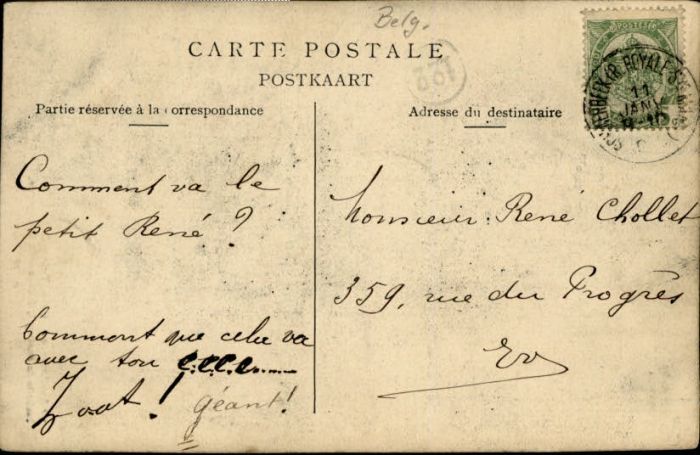 Belg.
CARTE POSTALE
POSTKAART
122
Partie réservée à la correspondance
Adresse du destinataire
POSTES
SCHAERBEEK (R. ROYALE S
11
JANV
Comment va le
petit René ?
Comment que cela va
avec ton
Zoot !
géant !
Monsieur René Chollet
359, rue du Progrès
EV